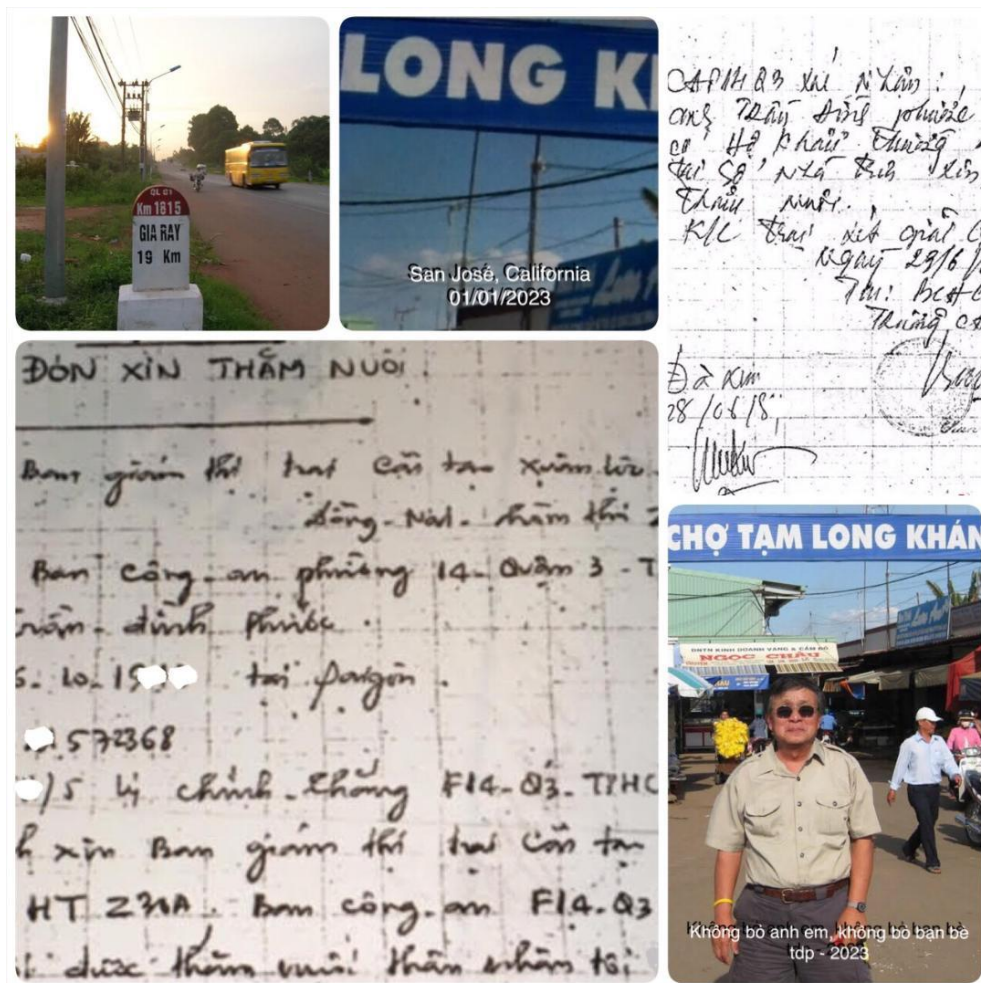 QL 01
Km 1815
GIA RAY
19 Km
LONG K
San José, California
01/01/2023
CAP14 Q3 xác nhận:
có Hộ khẩu thường
tại số nhà trên xin
thăm nuôi.
K/C trại xét giải
Ngày 29/6/
TM: BCH
Trưởng CA
Đã Kim
28/06/8
ĐƠN XIN THĂM NUÔI.
Ban giám thị trại cải tạo xuân lộc
đồng-Nai. hàm thi
Ban công-an phường 14-Quận 3-T
trần-đình phước.
5.10.19 tại Saigon.
572368
/5 lý chính-thắng F14-Q3-TPHC
h xin Ban giám thị trại cải tạo
HT Z30A. Ban công-an F14-Q3
được thăm nuôi thân nhân tôi
CHỢ TẠM LONG KHÁN
DNTN KINH DOANH VÀNG & CẦM ĐỒ
NGỌC CHÂU
Không bỏ anh em, không bỏ bạn bè
tdp - 2023